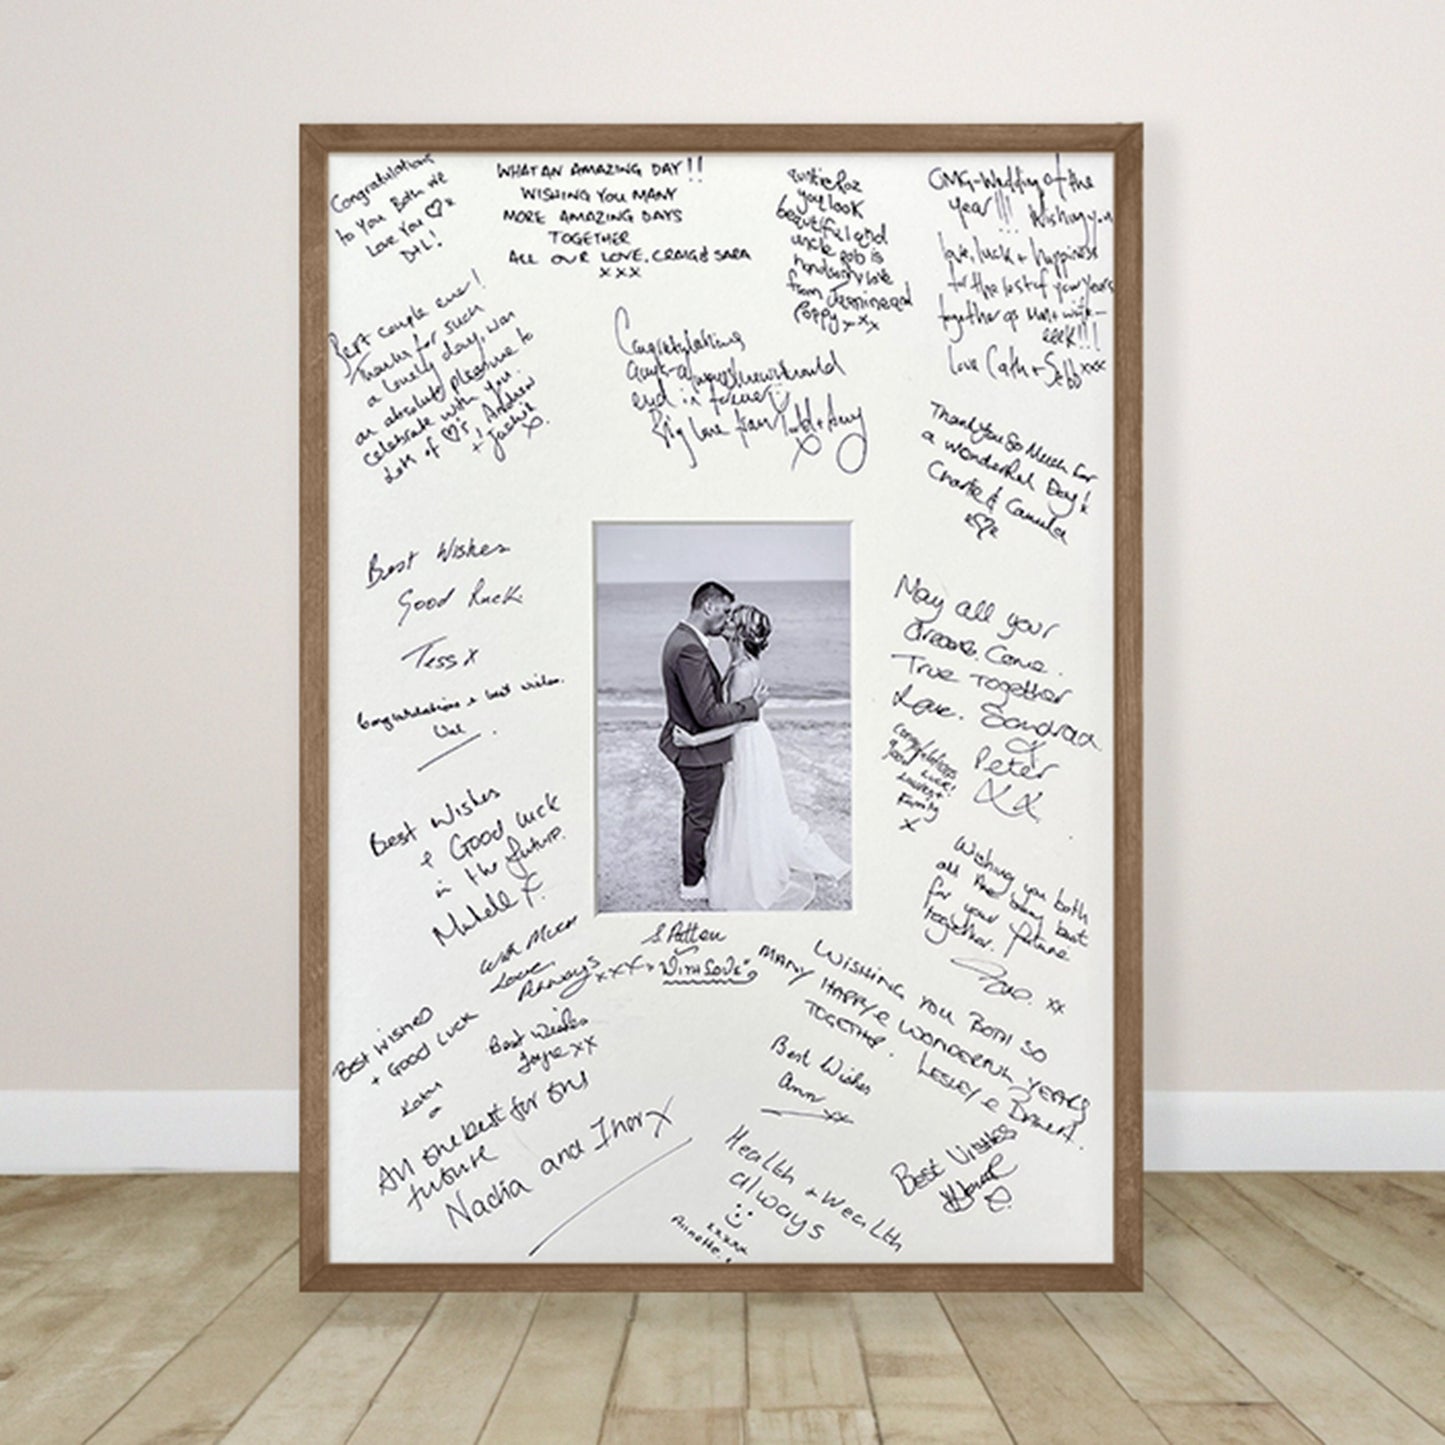 Congratulations
to You Both we
Love You
D+L!
WHAT AN AMAZING DAY!!
WISHING YOU MANY
MORE AMAZING DAYS
TOGETHER
ALL OUR LOVE, CRAIG & SARA
xxx
Auntie Roz
you look
beautiful and
uncle Rob is
handsom love
from Jasmine and
Poppy xxx
OMG-Wedding of the
year!!! Wishing you
love, luck + happiness
for the rest of your years
together as Mr + wife -
eeek!!!
Love Cath + Sebb xxx
Best couple ever!
Thanks for such
a lovely day, was
an absolute pleasure to
celebrate with you.
Lots of ♡'s, Andrew
+ Jackie x.
Congratulations
always knew it would
end in forever
Big love from Todd + Amy
x
Thank You So Much for
a wonderful Day! x
Charlie & Camilla
x♡x
Best Wishes
Good Luck
Tess x
Congratulations + best wishes.
Val
May all your
dreams. Come.
True Together
Love. Sandra
& Peter
XX
Congratulations
good LUCK!
Family
x
Best Wishes
+ Good luck
in the future.
Michelle x.
Wishing you both
all the very best
for your future
together.
xx
With Much
Love,
Always xxxx
S Patten
"WITH LOVE"
WISHING YOU BOTH SO
MANY HAPPY & WONDERFUL YEARS
TOGETHER. LESLEY &
BEST WISHES
+ GOOD LUCK
Best Wishes
Joyce xx
Best Wishes
Ann xx
All the best for the
future
Nadia and Thor x
Health + Wealth
always
xxxxx
Annette.
Best Wishes